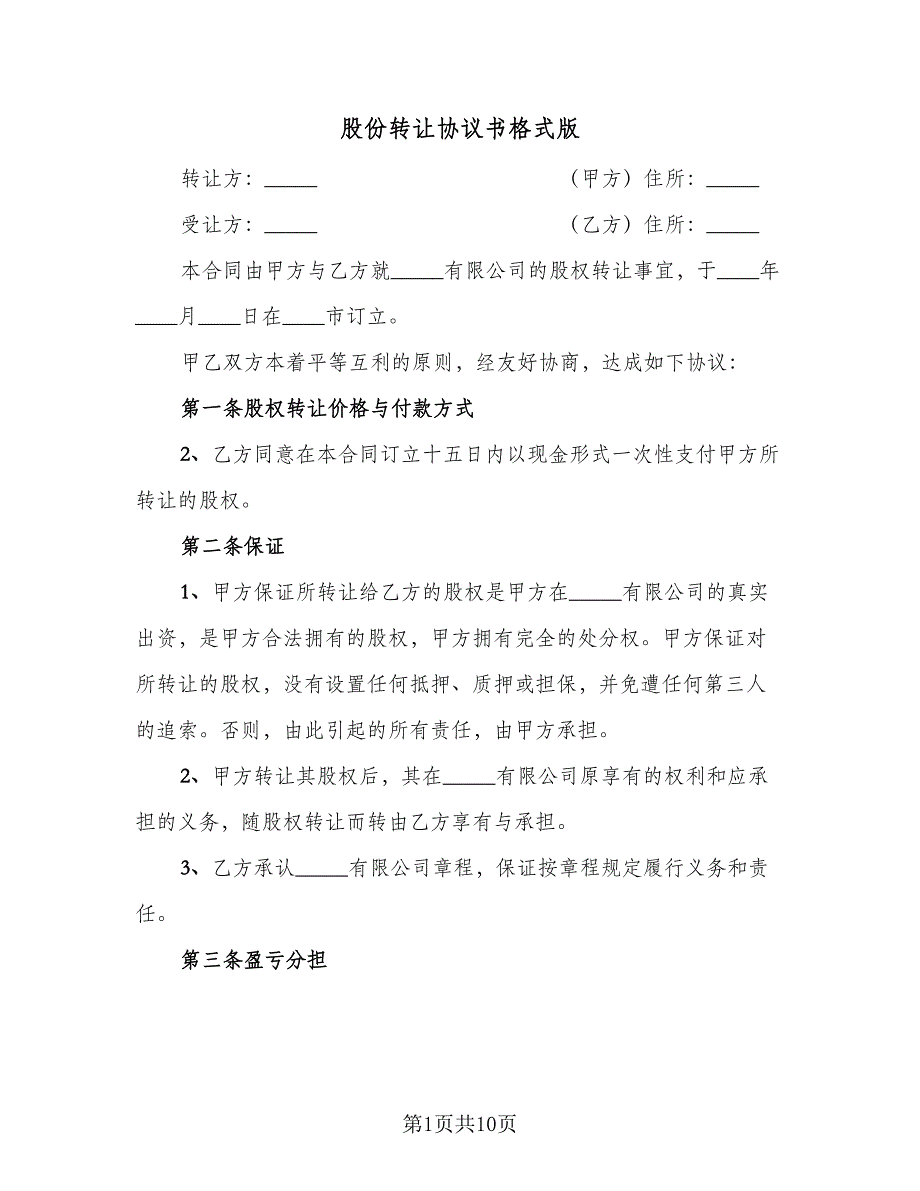 股份转让协议书格式版
转让方：_____ （甲方）住所：_____
受让方：_____ （乙方）住所：_____
本合同由甲方与乙方就_____有限公司的股权转让事宜，于____年
____月____日在____市订立。
甲乙双方本着平等互利的原则，经友好协商，达成如下协议：
第一条股权转让价格与付款方式
2、乙方同意在本合同订立十五日内以现金形式一次性支付甲方所
转让的股权。
第二条保证
1、甲方保证所转让给乙方的股权是甲方在_____有限公司的真实
出资，是甲方合法拥有的股权，甲方拥有完全的处分权。甲方保证对
所转让的股权，没有设置任何抵押、质押或担保，并免遭任何第三人
的追索。否则，由此引起的所有责任，由甲方承担。
2、甲方转让其股权后，其在_____有限公司原享有的权利和应承
担的义务，随股权转让而转由乙方享有与承担。
3、乙方承认_____有限公司章程，保证按章程规定履行义务和责
任。
第三条盈亏分担
第1页共10页